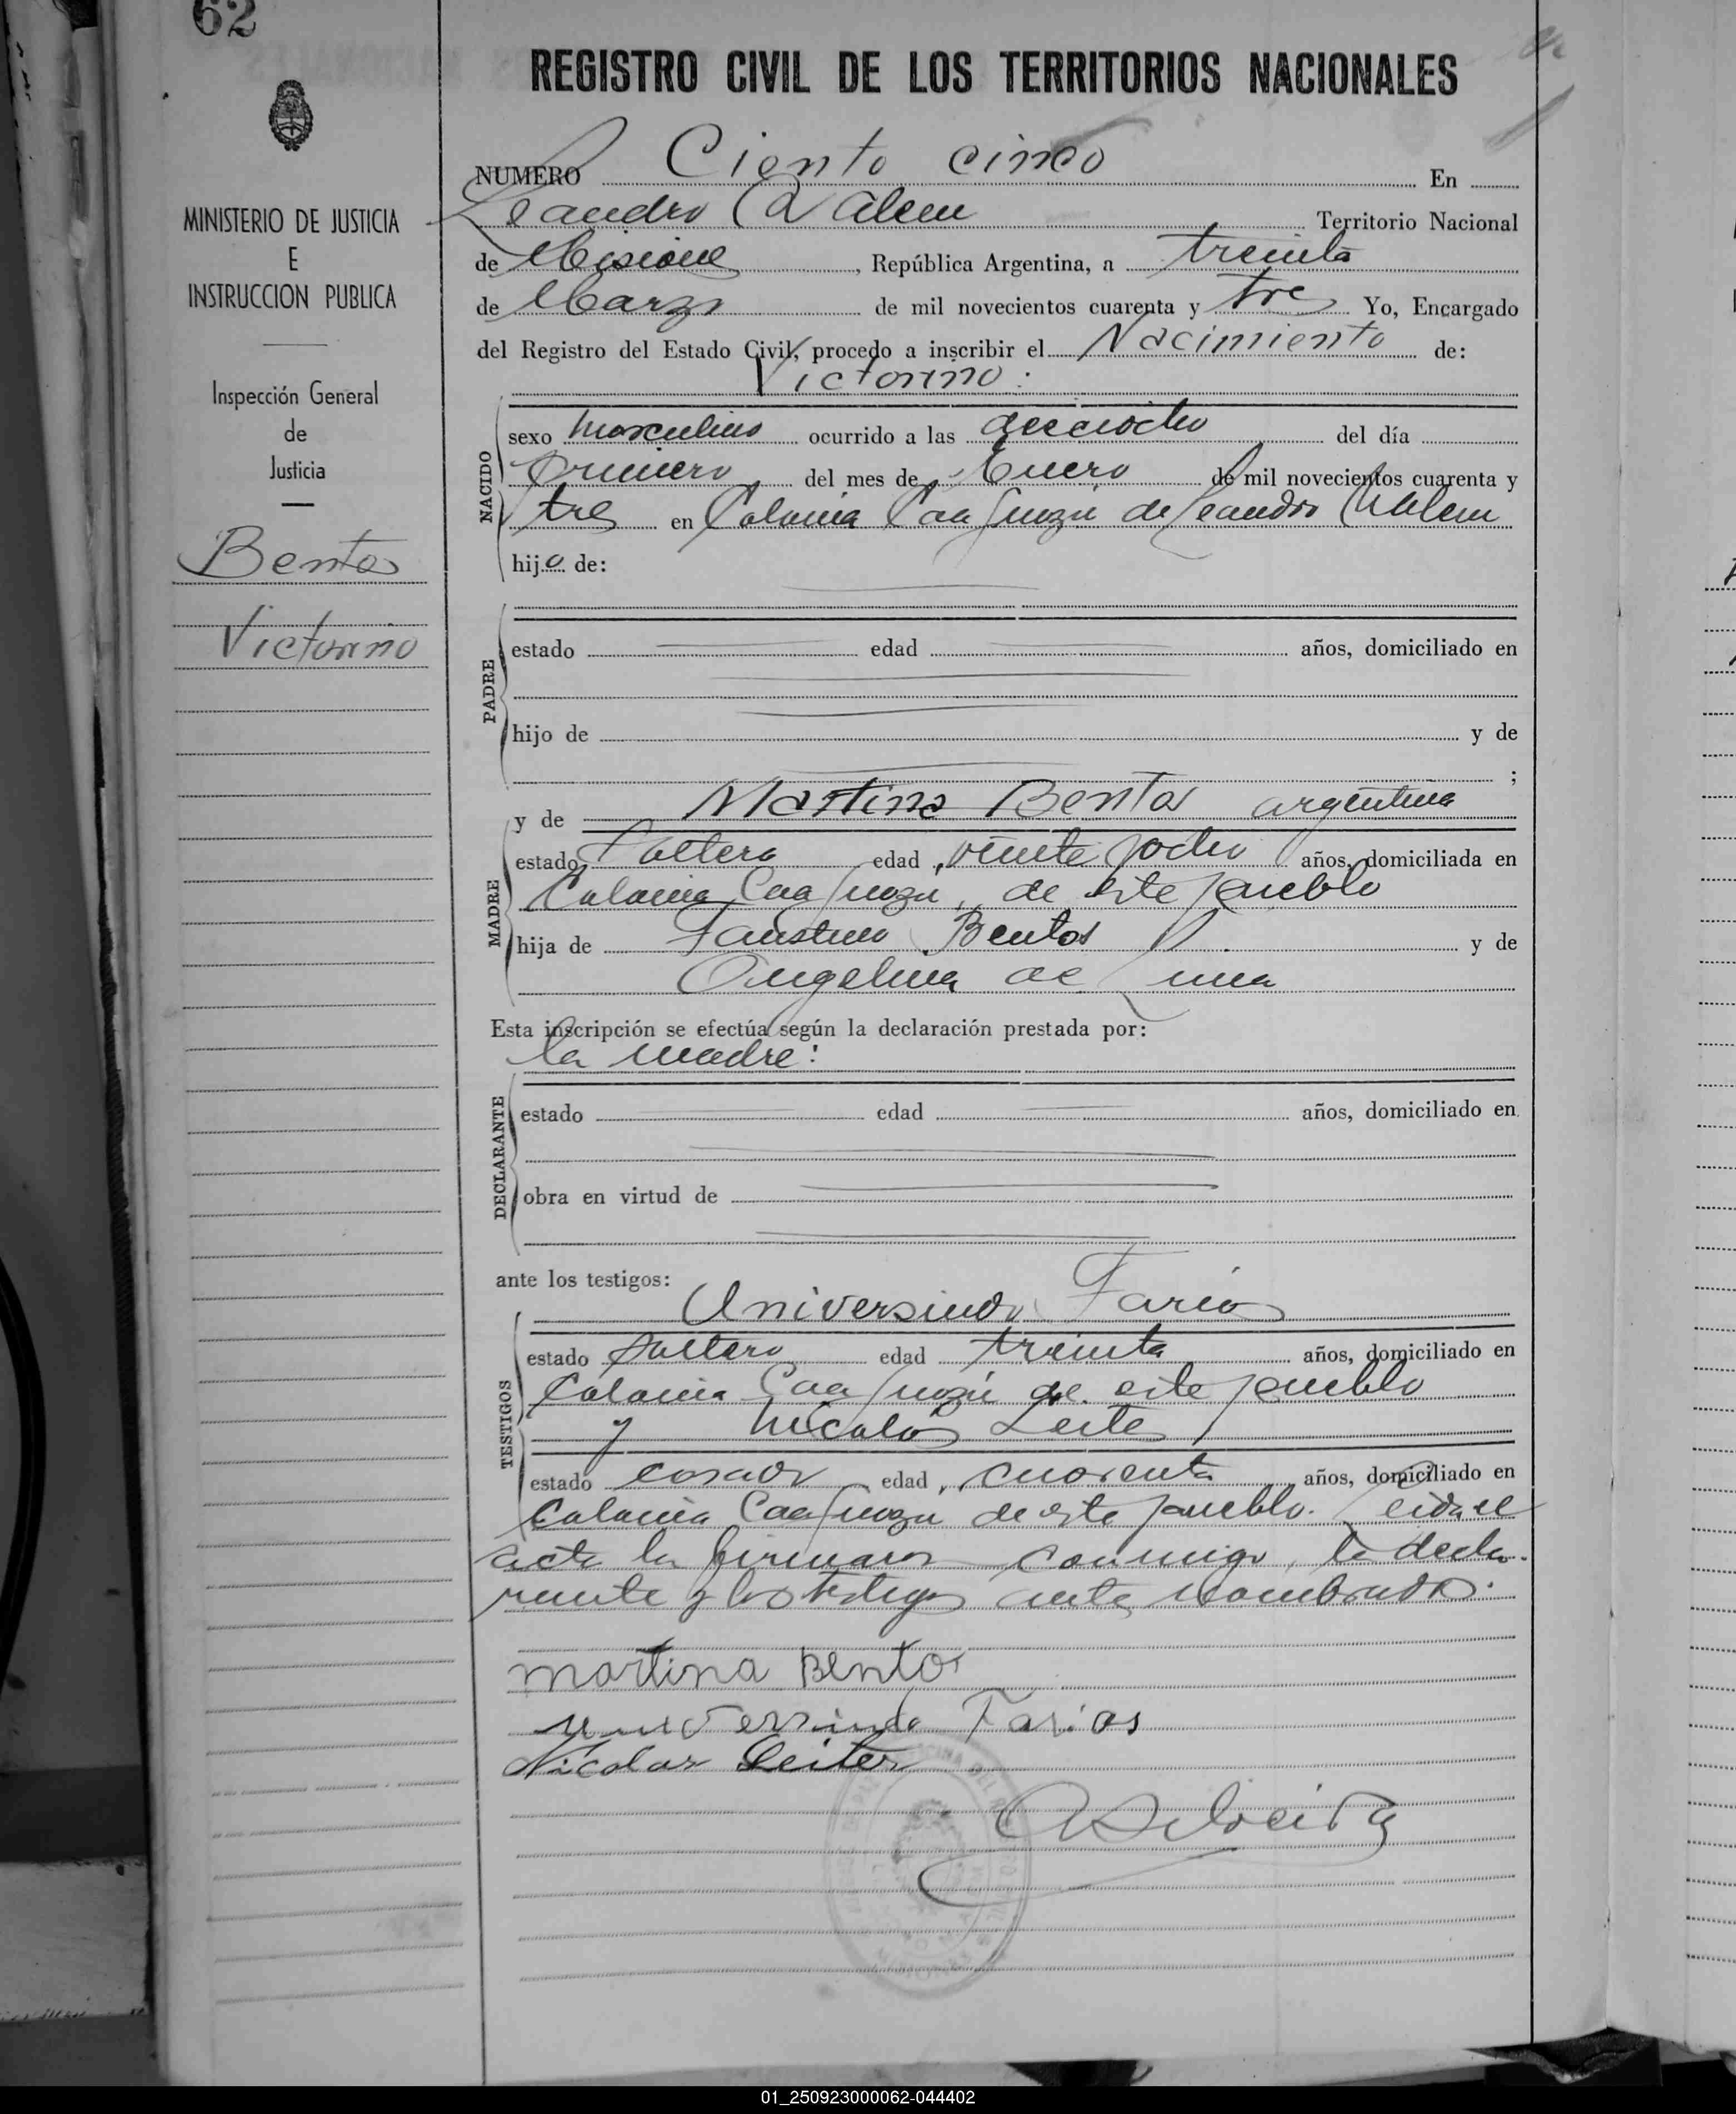 62
REGISTRO CIVIL DE LOS TERRITORIOS NACIONALES
MINISTERIO DE JUSTICIA
E
INSTRUCCION PUBLICA
Inspección General
de
Justicia
Bentos
Victorino
NUMERO Ciento cinco En
Leandro N Alem Territorio Nacional
de Misiones, República Argentina, a treinta
de Marzo de mil novecientos cuarenta y tres Yo, Encargado
del Registro del Estado Civil, procedo a inscribir el Nacimiento de:
Victorino:
NACIDO
sexo masculino ocurrido a las dieciocho del día
primero del mes de Enero de mil novecientos cuarenta y
tres en Colonia Caaguazú de Leandro N Alem
hijo de:
PADRE
estado edad años, domiciliado en
hijo de y de
;
y de Martina Bentos argentina
MADRE
estado soltera edad veinte y ocho años, domiciliada en
Colonia Caaguazu, de este pueblo
hija de Faustino Bentos y de
Angelina de Lima
Esta inscripción se efectúa según la declaración prestada por:
la madre:
DECLARANTE
estado edad años, domiciliado en
obra en virtud de
ante los testigos:
Universindo Farias
TESTIGOS
estado soltero edad treinta años, domiciliado en
Colonia Caaguazú de este pueblo
y Nicolás Leites
estado casado edad, cuarenta años, domiciliado en
Colonia Caaguazu de este pueblo. Leida el
acta la firmaron conmigo, la decla-
rante y los testigos antes nombrados.
martina Bentos
Universindo Farias
Nicolas Leites
01_250923000062-044402